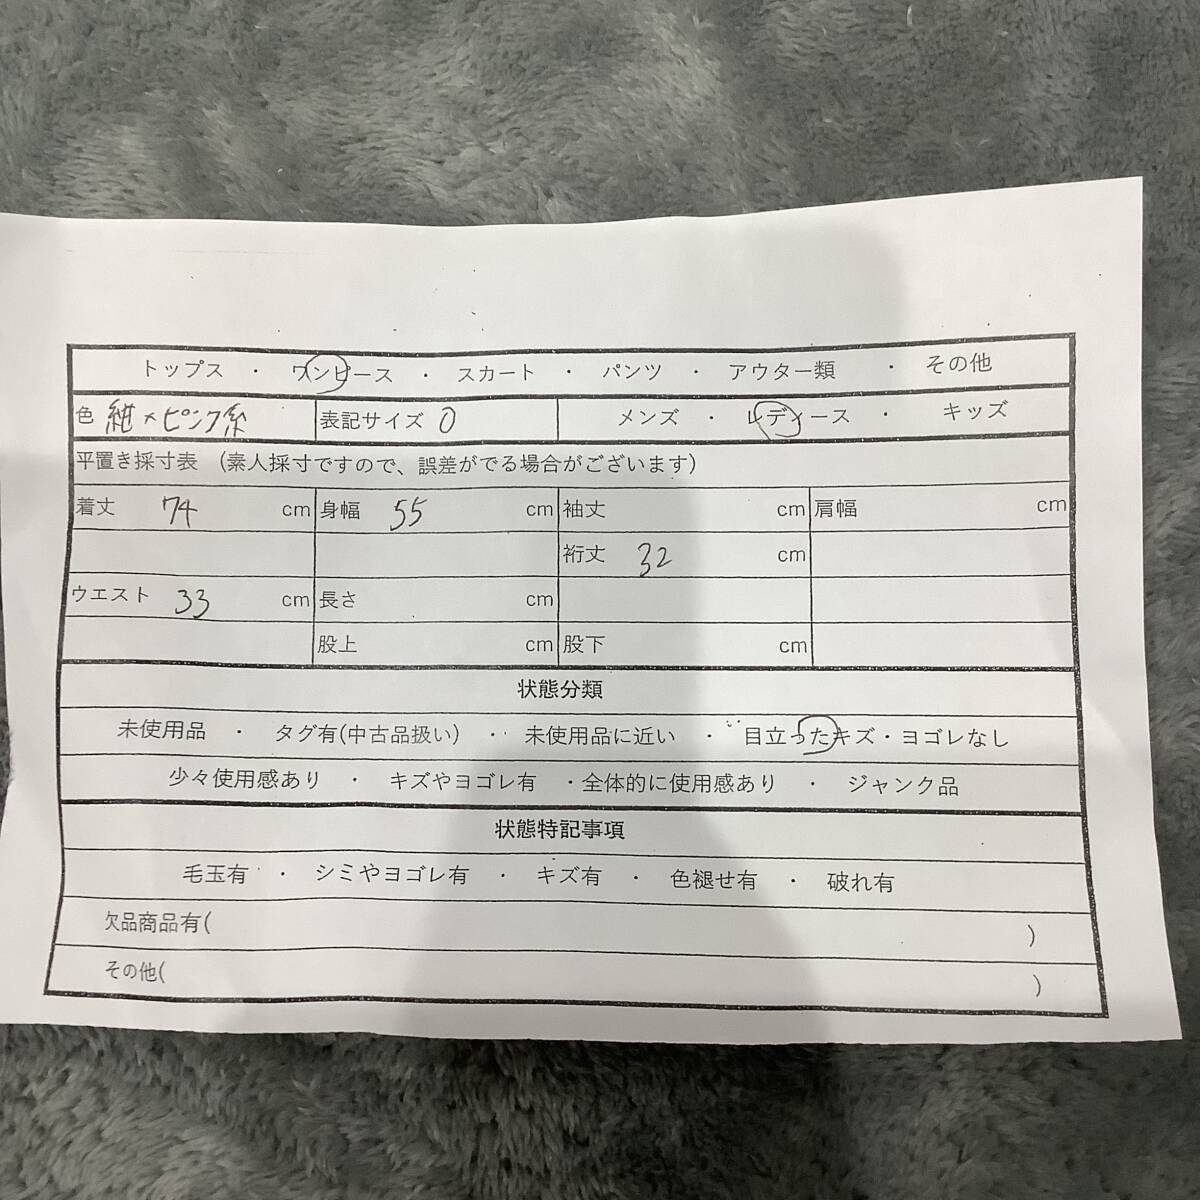 トップス ・ ワンピース ・ スカート ・ パンツ ・ アウター類 ・ その他
色 紺×ピンク系 表記サイズ 0 メンズ ・ レディース ・ キッズ
平置き採寸表 （素人採寸ですので、誤差がでる場合がございます）
着丈 74 cm 身幅 55 cm 袖丈 cm 肩幅 cm
裄丈 32 cm
ウエスト 33 cm 長さ cm
股上 cm 股下 cm
状態分類
未使用品 ・ タグ有(中古品扱い) ・ 未使用品に近い ・ 目立ったキズ・ヨゴレなし
少々使用感あり ・ キズやヨゴレ有 ・全体的に使用感あり ・ ジャンク品
状態特記事項
毛玉有 ・ シミやヨゴレ有 ・ キズ有 ・ 色褪せ有 ・ 破れ有
欠品商品有( )
その他( )